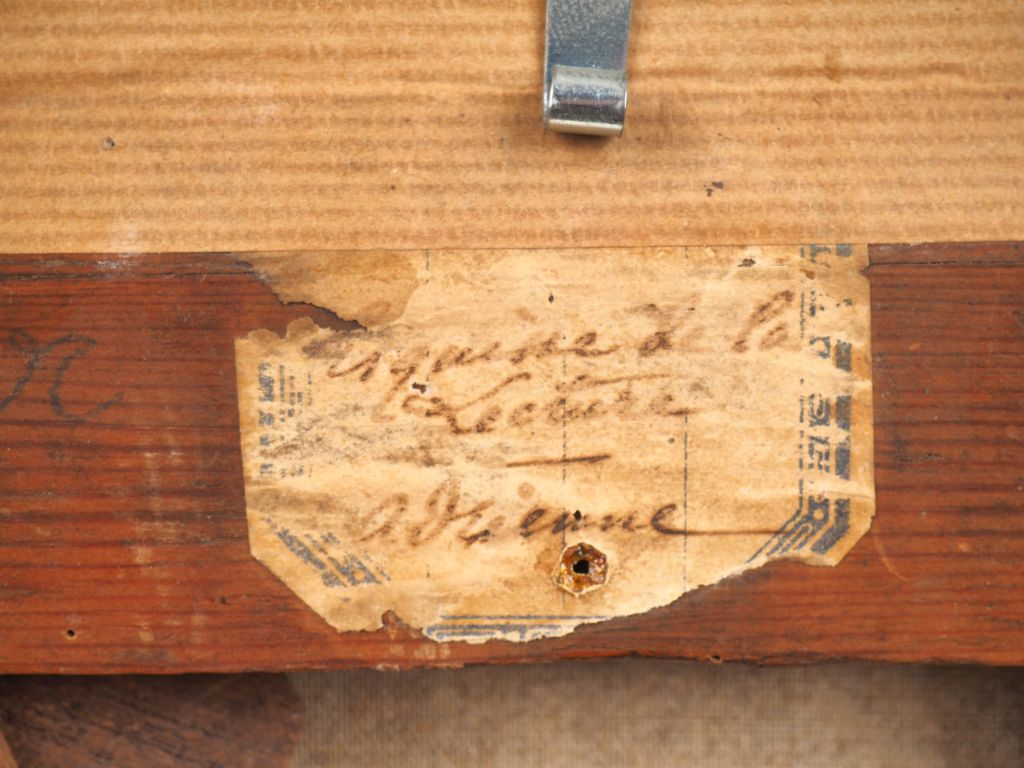 esquisse de la
Lecture
Adrienne